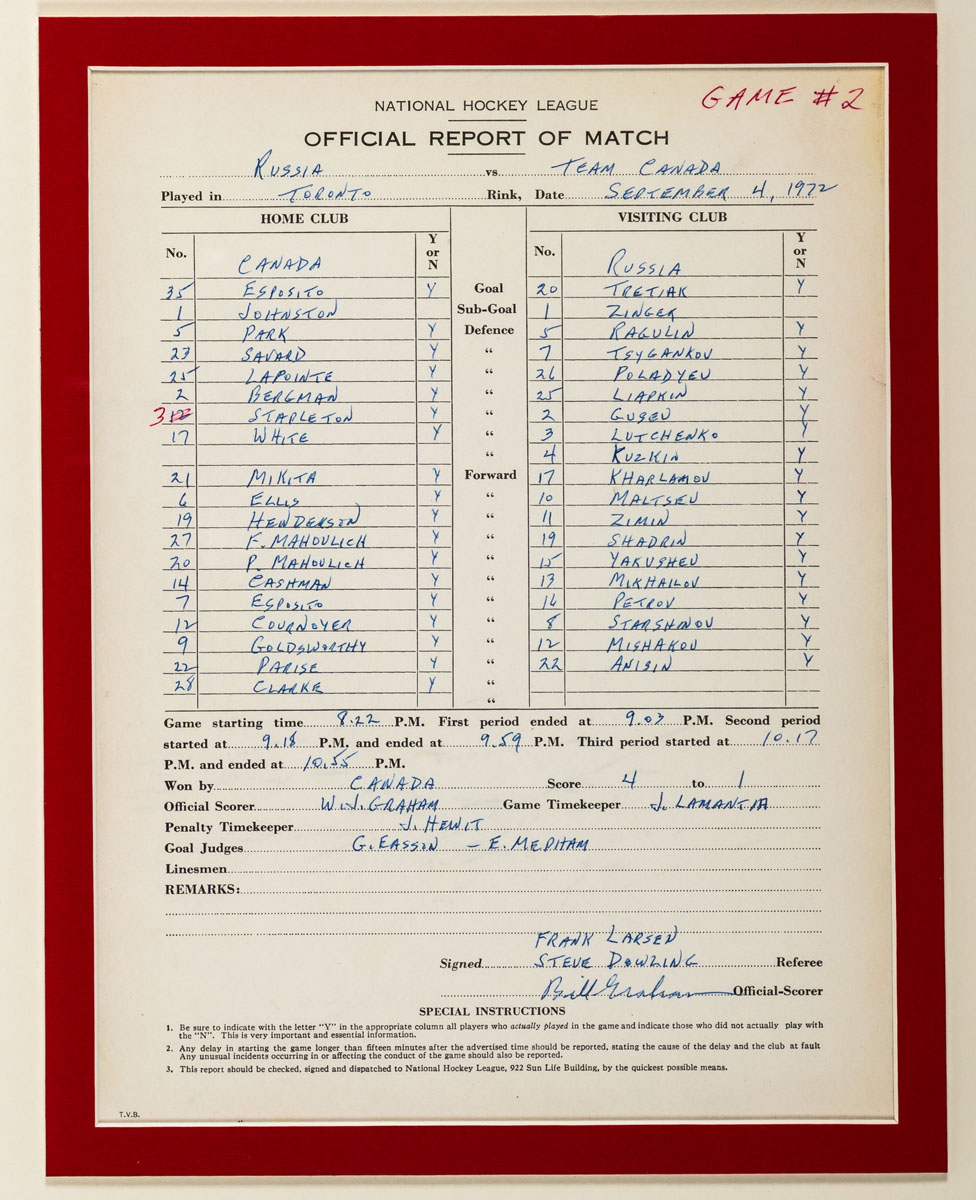 GAME #2
NATIONAL HOCKEY LEAGUE
OFFICIAL REPORT OF MATCH
RUSSIA vs TEAM CANADA
Played in TORONTO Rink, Date SEPTEMBER 4, 1972
HOME CLUB VISITING CLUB
No. CANADA Y or N No. RUSSIA Y or N
35 ESPOSITO Y Goal 20 TRETIAK Y
1 JOHNSTON Sub-Goal 1 ZINGER
5 PARK Y Defence 5 RAGULIN Y
23 SAVARD Y “ 7 TSYGANKOV Y
25 LAPOINTE Y “ 26 POLADYEV Y
2 BERGMAN Y “ 25 LIAPKIN Y
3 STAPLETON Y “ 2 GUSEV Y
17 WHITE Y “ 3 LUTCHENKO Y
“ 4 KUZKIN Y
21 MIKITA Y Forward 17 KHARLAMOV Y
6 ELLIS Y “ 10 MALTSEV Y
19 HENDERSON Y “ 11 ZIMIN Y
27 F. MAHOVLICH Y “ 19 SHADRIN Y
20 P. MAHOVLICH Y “ 15 YAKUSHEV Y
14 CASHMAN Y “ 13 MIKHAILOV Y
7 ESPOSITO Y “ 16 PETROV Y
12 COURNOYER Y “ 8 STARSHINOV Y
9 GOLDSWORTHY Y “ 12 MISHAKOV Y
22 PARISE Y “ 22 ANISIN Y
28 CLARKE Y “
“
Game starting time 8.22 P.M. First period ended at 9.03 P.M. Second period
started at 9.18 P.M. and ended at 9.59 P.M. Third period started at 10.17
P.M. and ended at 10.55 P.M.
Won by CANADA Score 4 to 1
Official Scorer W.J. GRAHAM Game Timekeeper J. LAMANTIA
Penalty Timekeeper J. HEWIT
Goal Judges G. EASSON – E. MEPHAM
Linesmen
REMARKS:
FRANK LARSEN
Signed STEVE DOWLING Referee
Bill Graham Official-Scorer
SPECIAL INSTRUCTIONS
1. Be sure to indicate with the letter "Y" in the appropriate column all players who actually played in the game and indicate those who did not actually play with
the "N". This is very important and essential information.
2. Any delay in starting the game longer than fifteen minutes after the advertised time should be reported, stating the cause of the delay and the club at fault
Any unusual incidents occurring in or affecting the conduct of the game should also be reported.
3. This report should be checked, signed and dispatched to National Hockey League, 922 Sun Life Building, by the quickest possible means.
T.V.B.